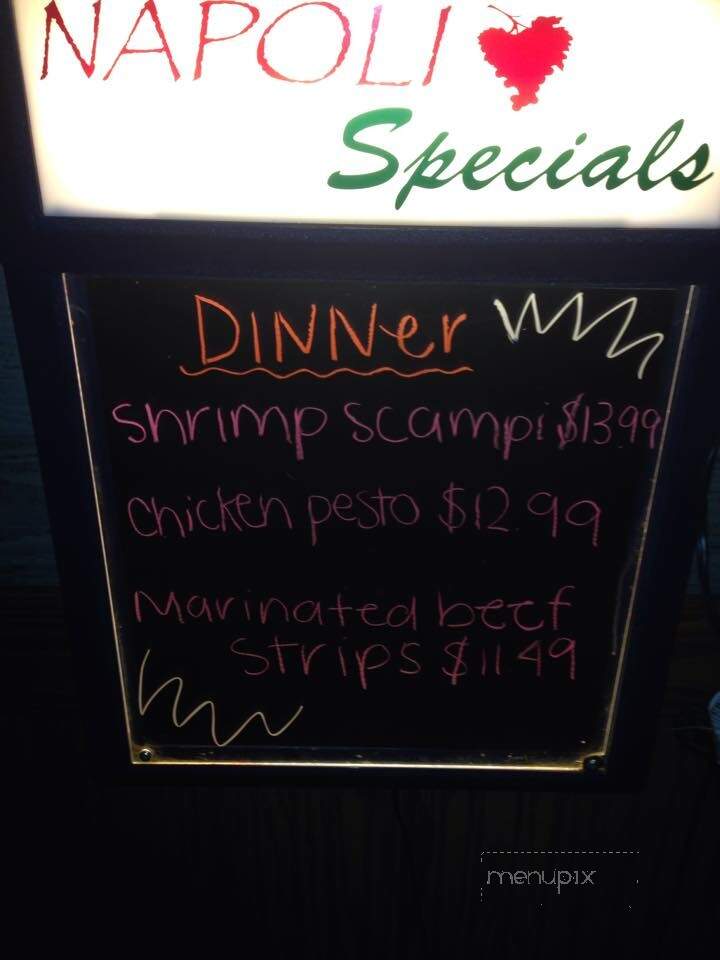 NAPOLI
Specials
DINNer
shrimp scampi $13.99
chicken pesto $12.99
Marinated beef
strips $11.49
menupix